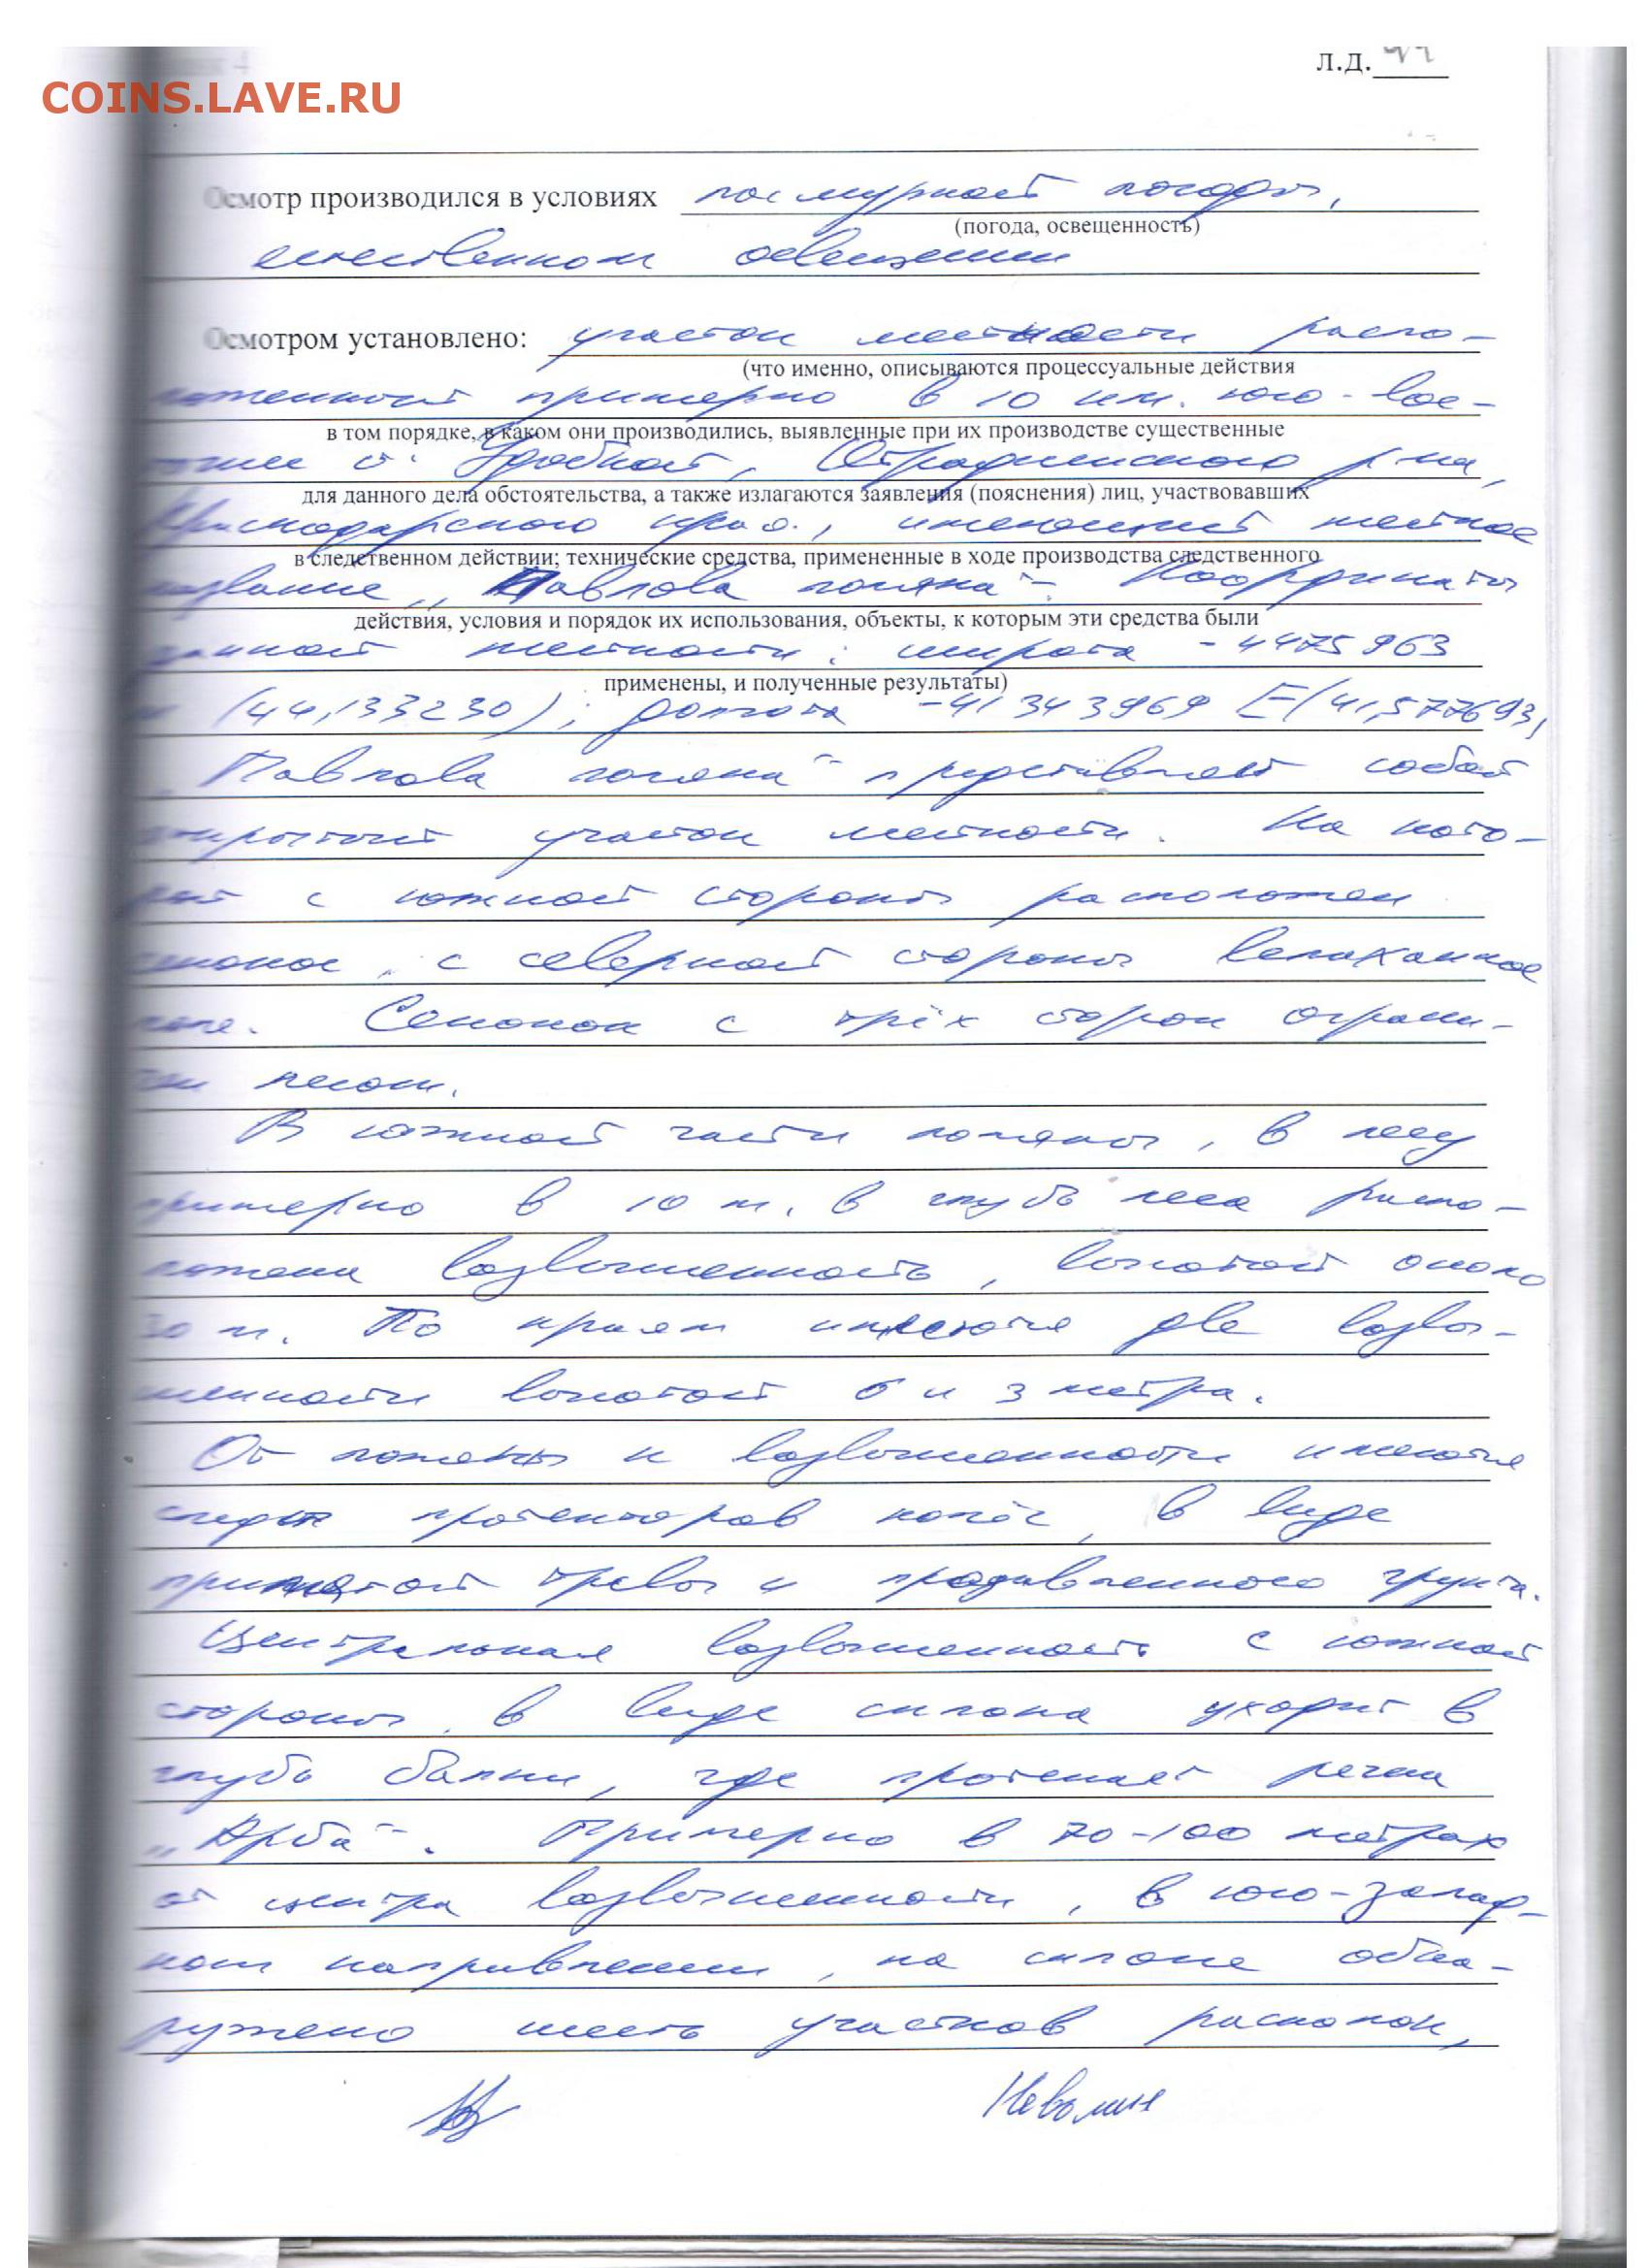 COINS.LAVE.RU
л.д.
Осмотр производился в условиях пасмурной погоды,
(погода, освещенность)
естественном освещении
Осмотром установлено: участок местности распо-
(что именно, описываются процессуальные действия
ложенный примерно в 10 км. юго-вос-
в том порядке, в каком они производились, выявленные при их производстве существенные
точнее с. Удобной, Отрадненского р-на,
для данного дела обстоятельства, а также излагаются заявления (пояснения) лиц, участвовавших
Краснодарского края, имеющий местное
в следственном действии; технические средства, примененные в ходе производства следственного
название „Павлова поляна". Координаты
действия, условия и порядок их использования, объекты, к которым эти средства были
данной местности: широта - 4475963
применены, и полученные результаты)
(44,133230); долгота - 41343969 E (41,577693)
„Павлова поляна" представляет собой
открытый участок местности. На кото-
рой с южной стороны расположен
сенокос, с северной стороны вспаханное
поле. Сенокос с трёх сторон ограни-
чен лесом.
В южной части поляны, в лесу
примерно в 10 м. в глубь леса распо-
ложена возвышенность, высотой около
30 м. По краям имеются две возвы-
шенности высотой 6 и 3 метра.
От поляны к возвышенности имеются
следы протекторов колёс, в виде
примятой травы и продавленного грунта.
Центральная возвышенность с южной
стороны, в виде склона уходит в
глубь балки, где протекает речка
„Арба". Примерно в 70-100 метрах
от центра возвышенности, в юго-запад-
ном направлении, на склоне обна-
ружено шесть участков раскопок,